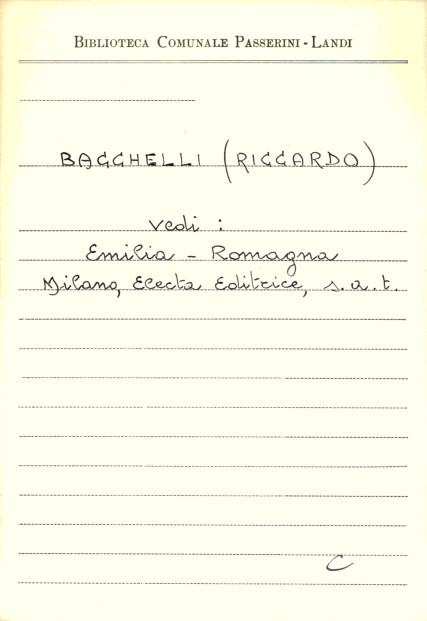 BIBLIOTECA COMUNALE PASSERINI - LANDI
BACCHELLI (RICCARDO)
vedi :
Emilia - Romagna
Milano, Electa Editrice, s.a.t.
C